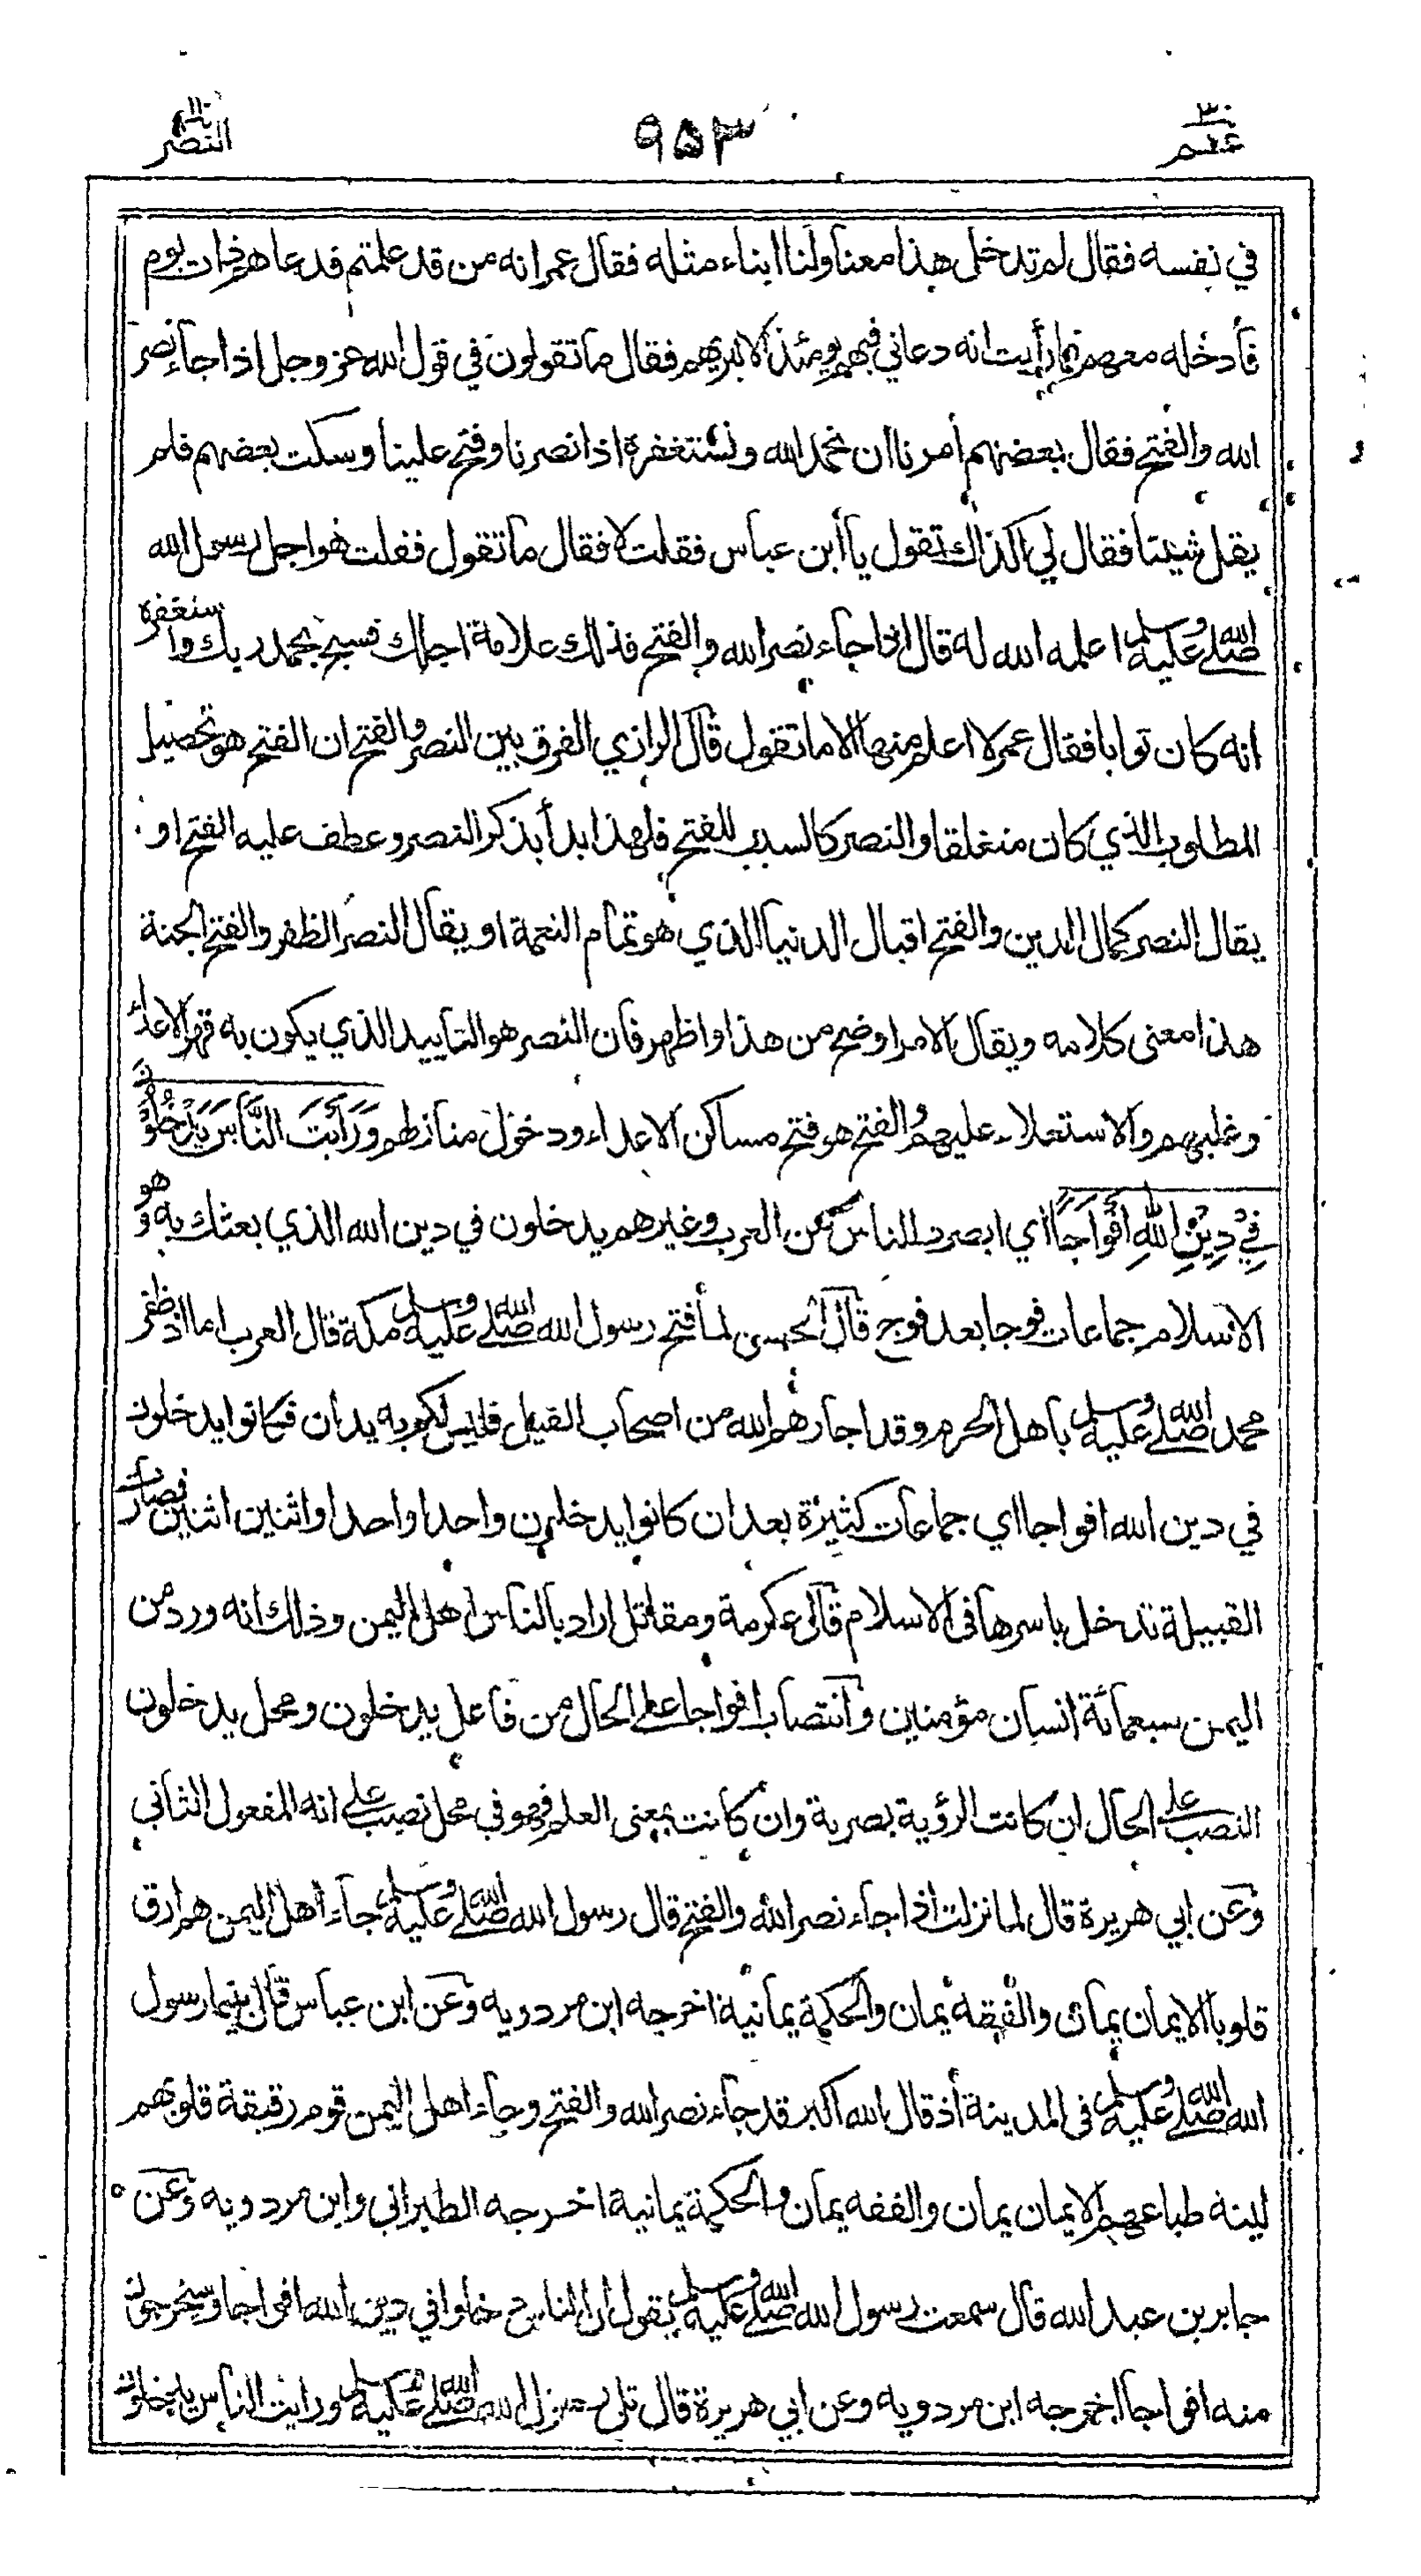 ٣٠ عم
٩٥٣
١١٠ النصر
في نفسه فقال لم تدخل هذا معنا ولنا ابناء مثله فقال عمر انه من قد علمتم فدعاهم ذات يوم
فأدخله معهم فما رأيت انه دعاني فيهم يومئذ الا ليريهم فقال ما تقولون في قول الله عز وجل اذا جاء نصر
الله والفتح فقال بعضهم أمرنا ان نحمد الله ونستغفره اذا نصرنا وفتح علينا وسكت بعضهم فلم
يقل شيئا فقال لي اكذاك تقول يا أبن عباس فقلت لا فقال ما تقول فقلت هو اجل رسول الله
صلى الله عليه وسلم اعلمه الله له قال اذا جاء نصر الله والفتح فذلك علامة اجلك فسبح بحمد ربك واستغفره
انه كان توابا فقال عمر لا اعلم منها الا ما تقول قال الرازي الفرق بين النصر والفتح ان الفتح هو تحصيل
المطلوب الذي كان منغلقا والنصر كالسبب للفتح فلهذا بدأ بذكر النصر وعطف عليه الفتح او
يقال النصر كمال الدين والفتح اقبال الدنيا الذي هو تمام النعمة او يقال النصر الظفر والفتح الجنة
هذا معنى كلامه ويقال الامر اوضح من هذا واظهر فان النصر هو التأييد الذي يكون به قهر الاعداء
وغلبهم والاستعلاء عليهم والفتح هو فتح مساكن الاعداء ودخول منازلهم وَرَأَيْتَ النَّاسَ يَدْخُلُوْنَ
فِيْ دِيْنِ اللهِ أَفْوَاجًا اي ابصرت الناس من العرب وغيرهم يدخلون في دين الله الذي بعثك به وهو
الاسلام جماعات فوجا بعد فوج قال الحسن لما فتح رسول الله صلى الله عليه وسلم مكة قال العرب اما اذ ظفر
محمد صلى الله عليه وسلم باهل الحرم وقد اجارهم الله من اصحاب الفيل فليس لكم به يدان فكانوا يدخلون
في دين الله افواجا اي جماعات كثيرة بعد ان كانوا يدخلون واحدا واحدا واثنين اثنين فصارت
القبيلة تدخل باسرها في الاسلام قال عكرمة ومقاتل اراد بالناس اهل اليمن وذلك انه ورد من
اليمن سبعمائة انسان مؤمنين وانتصاب افواجا على الحال من فاعل يدخلون ومحل يدخلون
النصب على الحال ان كانت الرؤية بصرية وان كانت بمعنى العلم فهو في محل نصب على انه المفعول الثاني
وعن ابي هريرة قال لما نزلت اذا جاء نصر الله والفتح قال رسول الله صلى الله عليه وسلم جاء اهل اليمن هم ارق
قلوبا الايمان يمان والفقه يمان والحكمة يمانية اخرجه ابن مردويه وعن ابن عباس قال بينما رسول
الله صلى الله عليه وسلم في المدينة أذ قال الله اكبر قد جاء نصر الله والفتح وجاء اهل اليمن قوم رقيقة قلوبهم
لينة طباعهم الايمان يمان والفقه يمان والحكمة يمانية اخرجه الطبراني وابن مردويه وعن
جابر بن عبد الله قال سمعت رسول الله صلى الله عليه وسلم يقول ان الناس دخلوا في دين الله افواجا وسيخرجون
منه افواجا اخرجه ابن مردويه وعن ابي هريرة قال تلى رسول الله صلى الله عليه وسلم ورايت الناس يدخلون